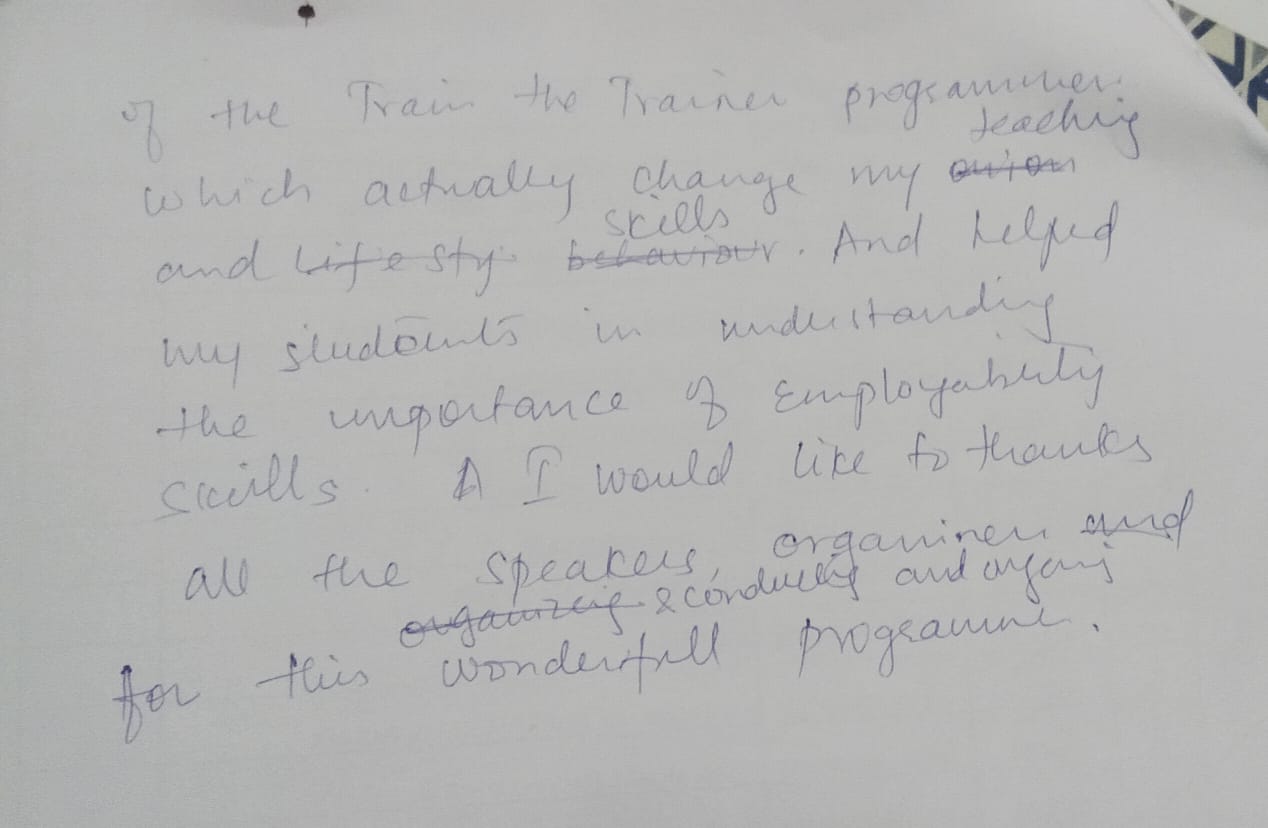 of the Train the Trainer programmer
teaching
which actually change my
skills
and life sty behaviour. And helped
my students in understanding
the importance of Employability
skills. A I would like to thanks
all the speakers, organiner and
organizing & conducting and organi
for this wonderfull programme.